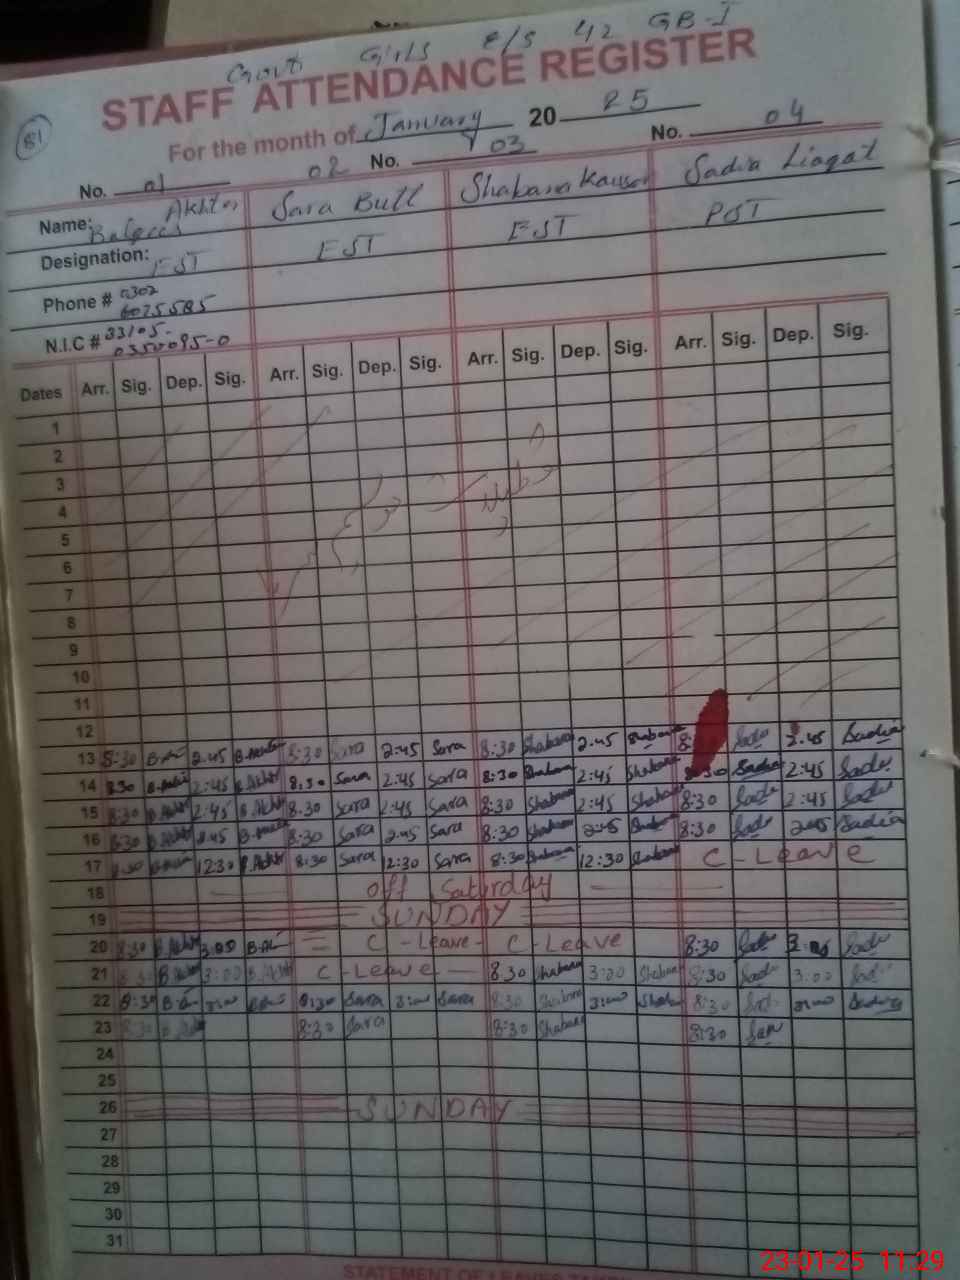 Govt Girls E/S 42 GB-I
STAFF ATTENDANCE REGISTER
81
For the month of January 2025
No. 01 02 No. 03 No. 04
Name: Akhter Sara Butt Shabana Kausar Sadia Liaqat
Designation: EST EST EST PST
Phone # 0302
6075585
N.I.C # 33105-
0350095-0
Dates Arr. Sig. Dep. Sig. Arr. Sig. Dep. Sig. Arr. Sig. Dep. Sig. Arr. Sig. Dep. Sig.
1
2
3
4
5
6
7
8
9
10
11
12
13 8:30 2:45 8:30 Sara 2:45 Sara 8:30 Shabana 2:45 Shabana 8: Sadia 2:45 Sadia
14 8:30 2:45 B.Akhtr 8:30 Sara 2:45 Sara 8:30 Shabana 2:45 Shabana 8:30 Sadia 2:45 Sadia
15 8:30 B.Akhtr 2:45 B.Akhtr 8:30 Sara 2:45 Sara 8:30 Shabana 2:45 Shabana 8:30 Sadia 2:45 Sadia
16 8:30 B.Akhtr 2:45 8:30 Sara 2:45 Sara 8:30 Shabana 2:45 Shabana 8:30 Sadia 2:45 Sadia
17 8:30 12:30 B.Akhtr 8:30 Sara 12:30 Sara 8:30 Shabana 12:30 Shabana C-Leave
18 off Saturday
19 SUNDAY
20 8:30 B.Akhtr 3:00 C-Leave- C-Leave 8:30 Sadia 3:00 Sadia
21 8:30 B.Akhtr 3:00 B.Akhtr C-Leave 8:30 Shabana 3:00 Shabana 8:30 Sadia 3:00 Sadia
22 8:30 3:00 8:30 Sara 3:00 Sara 8:30 Shabana 3:00 Shabana 8:30 Sadia 3:00 Sadia
23 8:30 8:30 Sara 8:30 Shabana 8:30
24
25
26 SUNDAY
27
28
29
30
31
STATEMENT OF LEAVES TAKEN
23-01-25 11:29